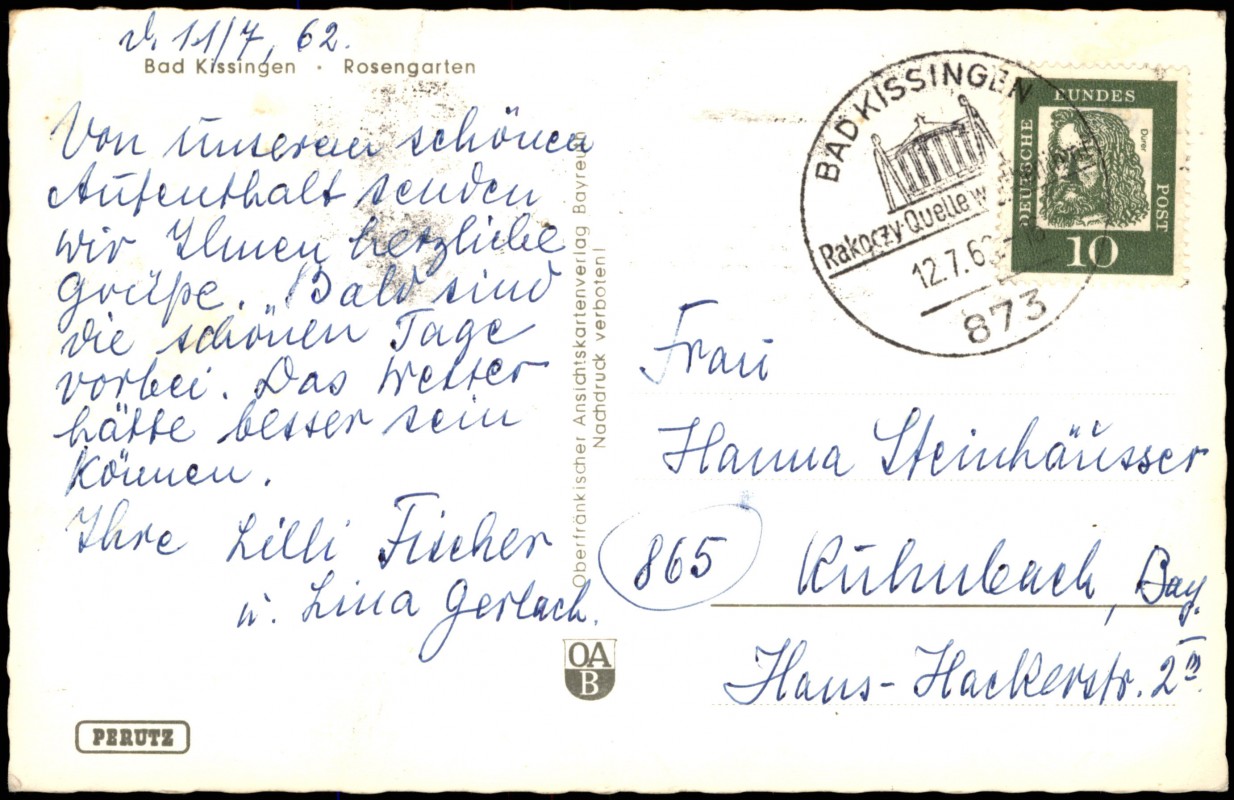 d. 11/7, 62.
Bad Kissingen · Rosengarten
Von unseren schönen
Aufenthalt senden
wir Ihnen herzliche
Grüße. Bald sind
die schönen Tage
vorbei. Das Wetter
hätte besser sein
können.
Ihre Lilli Fischer
u. Lina Gerlach.
PERUTZ
Oberfränkischer Ansichtskartenverlag Bayreuth
Nachdruck verboten!
OA
B
BAD KISSINGEN
Rakoczy-Quelle
12.7.62
873
DEUTSCHE
BUNDES
POST
Dürer
10
Frau
Hanna Steinhäusser
865
Kulmbach, Bay.
Hans-Hackerstr. 2